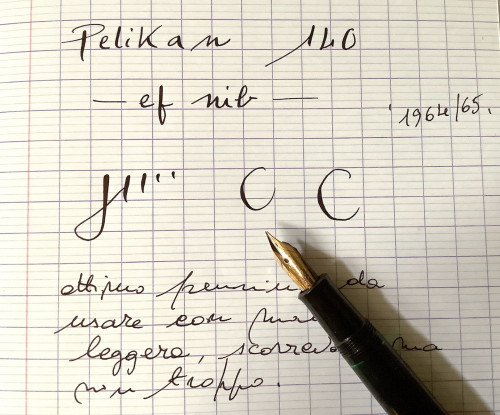 Pelikan 140
— ef nib —
1964/65.
C C
ottimo da
usare con
leggera, ma
non troppo.